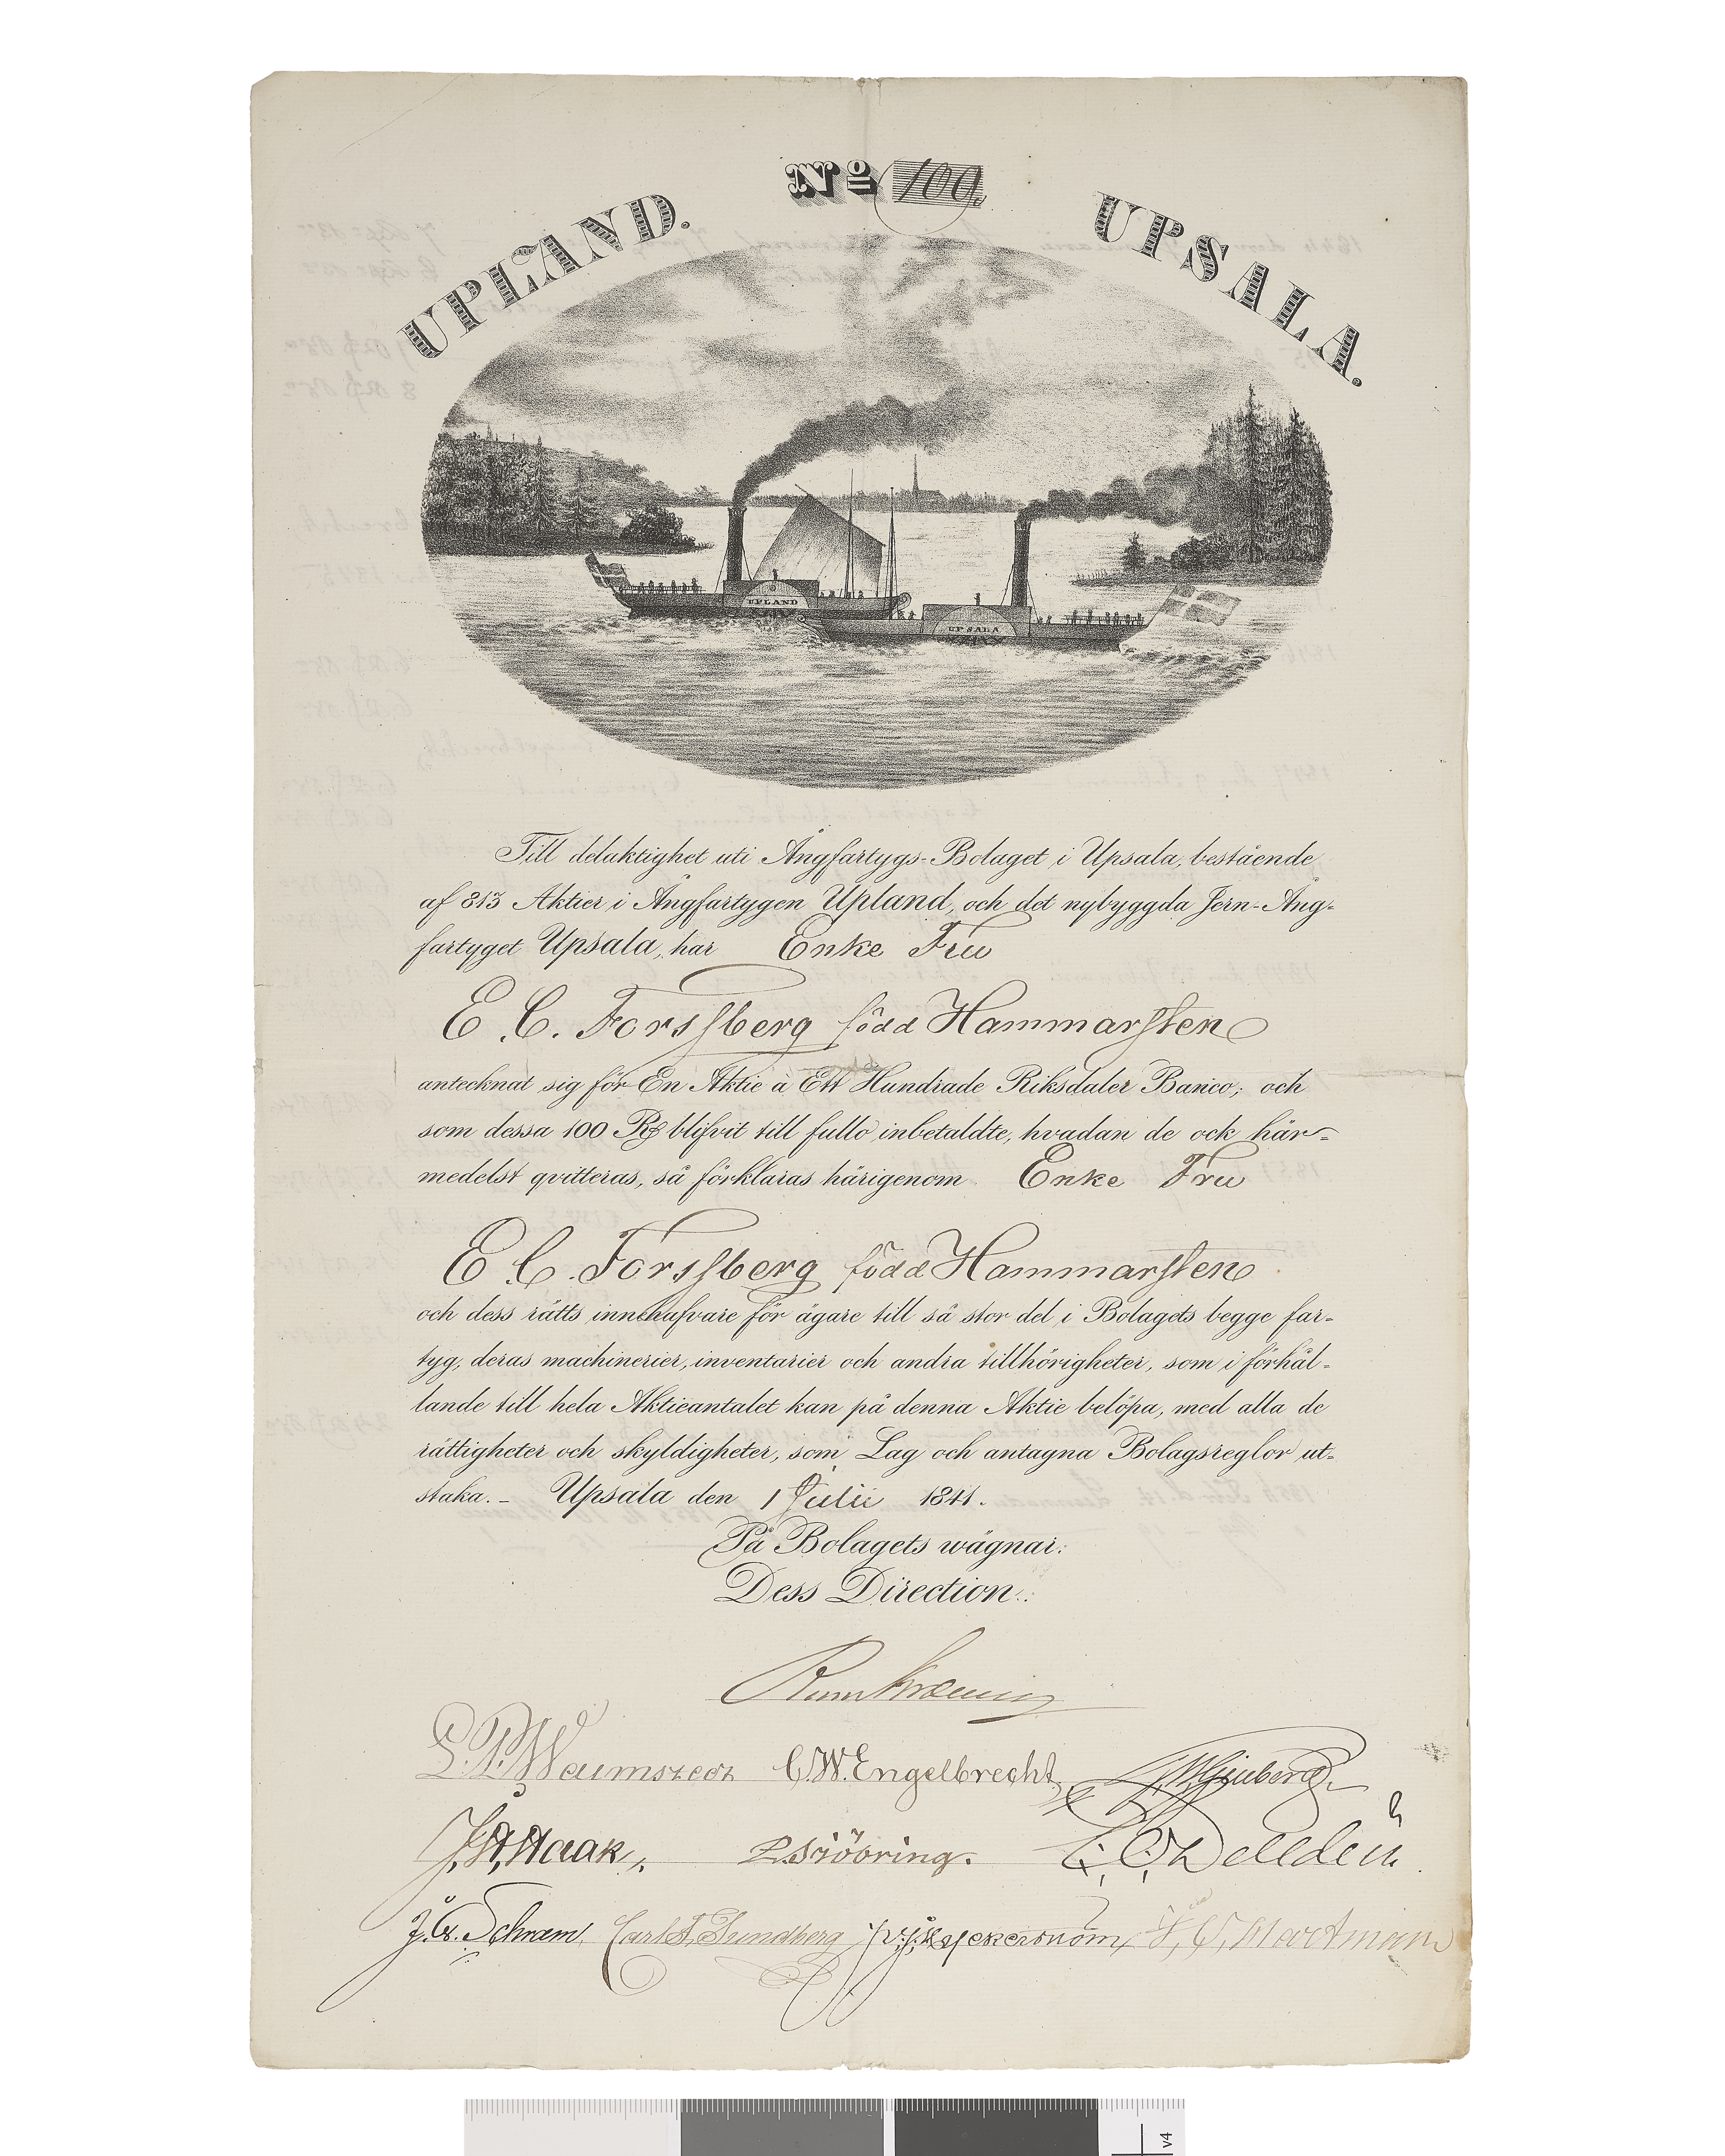 No 100.
UPLAND. UPSALA.
UPLAND
UPSALA
Till delaktighet uti Ångfartygs-Bolaget i Upsala, bestående
af 813 Aktier i Ångfartygen Upland, och det nybyggda Jern-Ång=
fartyget Upsala, har Enke Fru
E. C. Forssberg född Hammarsten
antecknat sig för En Aktie à Ett Hundrade Riksdaler Banco; och
som dessa 100 Rd blifvit till fullo inbetaldte, hvadan de ock här=
medelst qvitteras, så förklaras härigenom Enke Fru
E C. Forssberg född Hammarsten
och dess rätts innehafvare för ägare till så stor del i Bolagets begge far=
tyg, deras machinerier, inventarier och andra tillhörigheter, som i förhål=
lande till hela Aktieantalet kan på denna Aktie belöpa, med alla de
rättigheter och skyldigheter, som Lag och antagna Bolagsreglor ut=
staka. – Upsala den 1 Julii 1841.
På Bolagets wägnar:
Dess Direction:
C. W. Engelbrecht
J. A. Haak P. Sjöbring.
J. G. Schram Carl F. Sundberg
v4